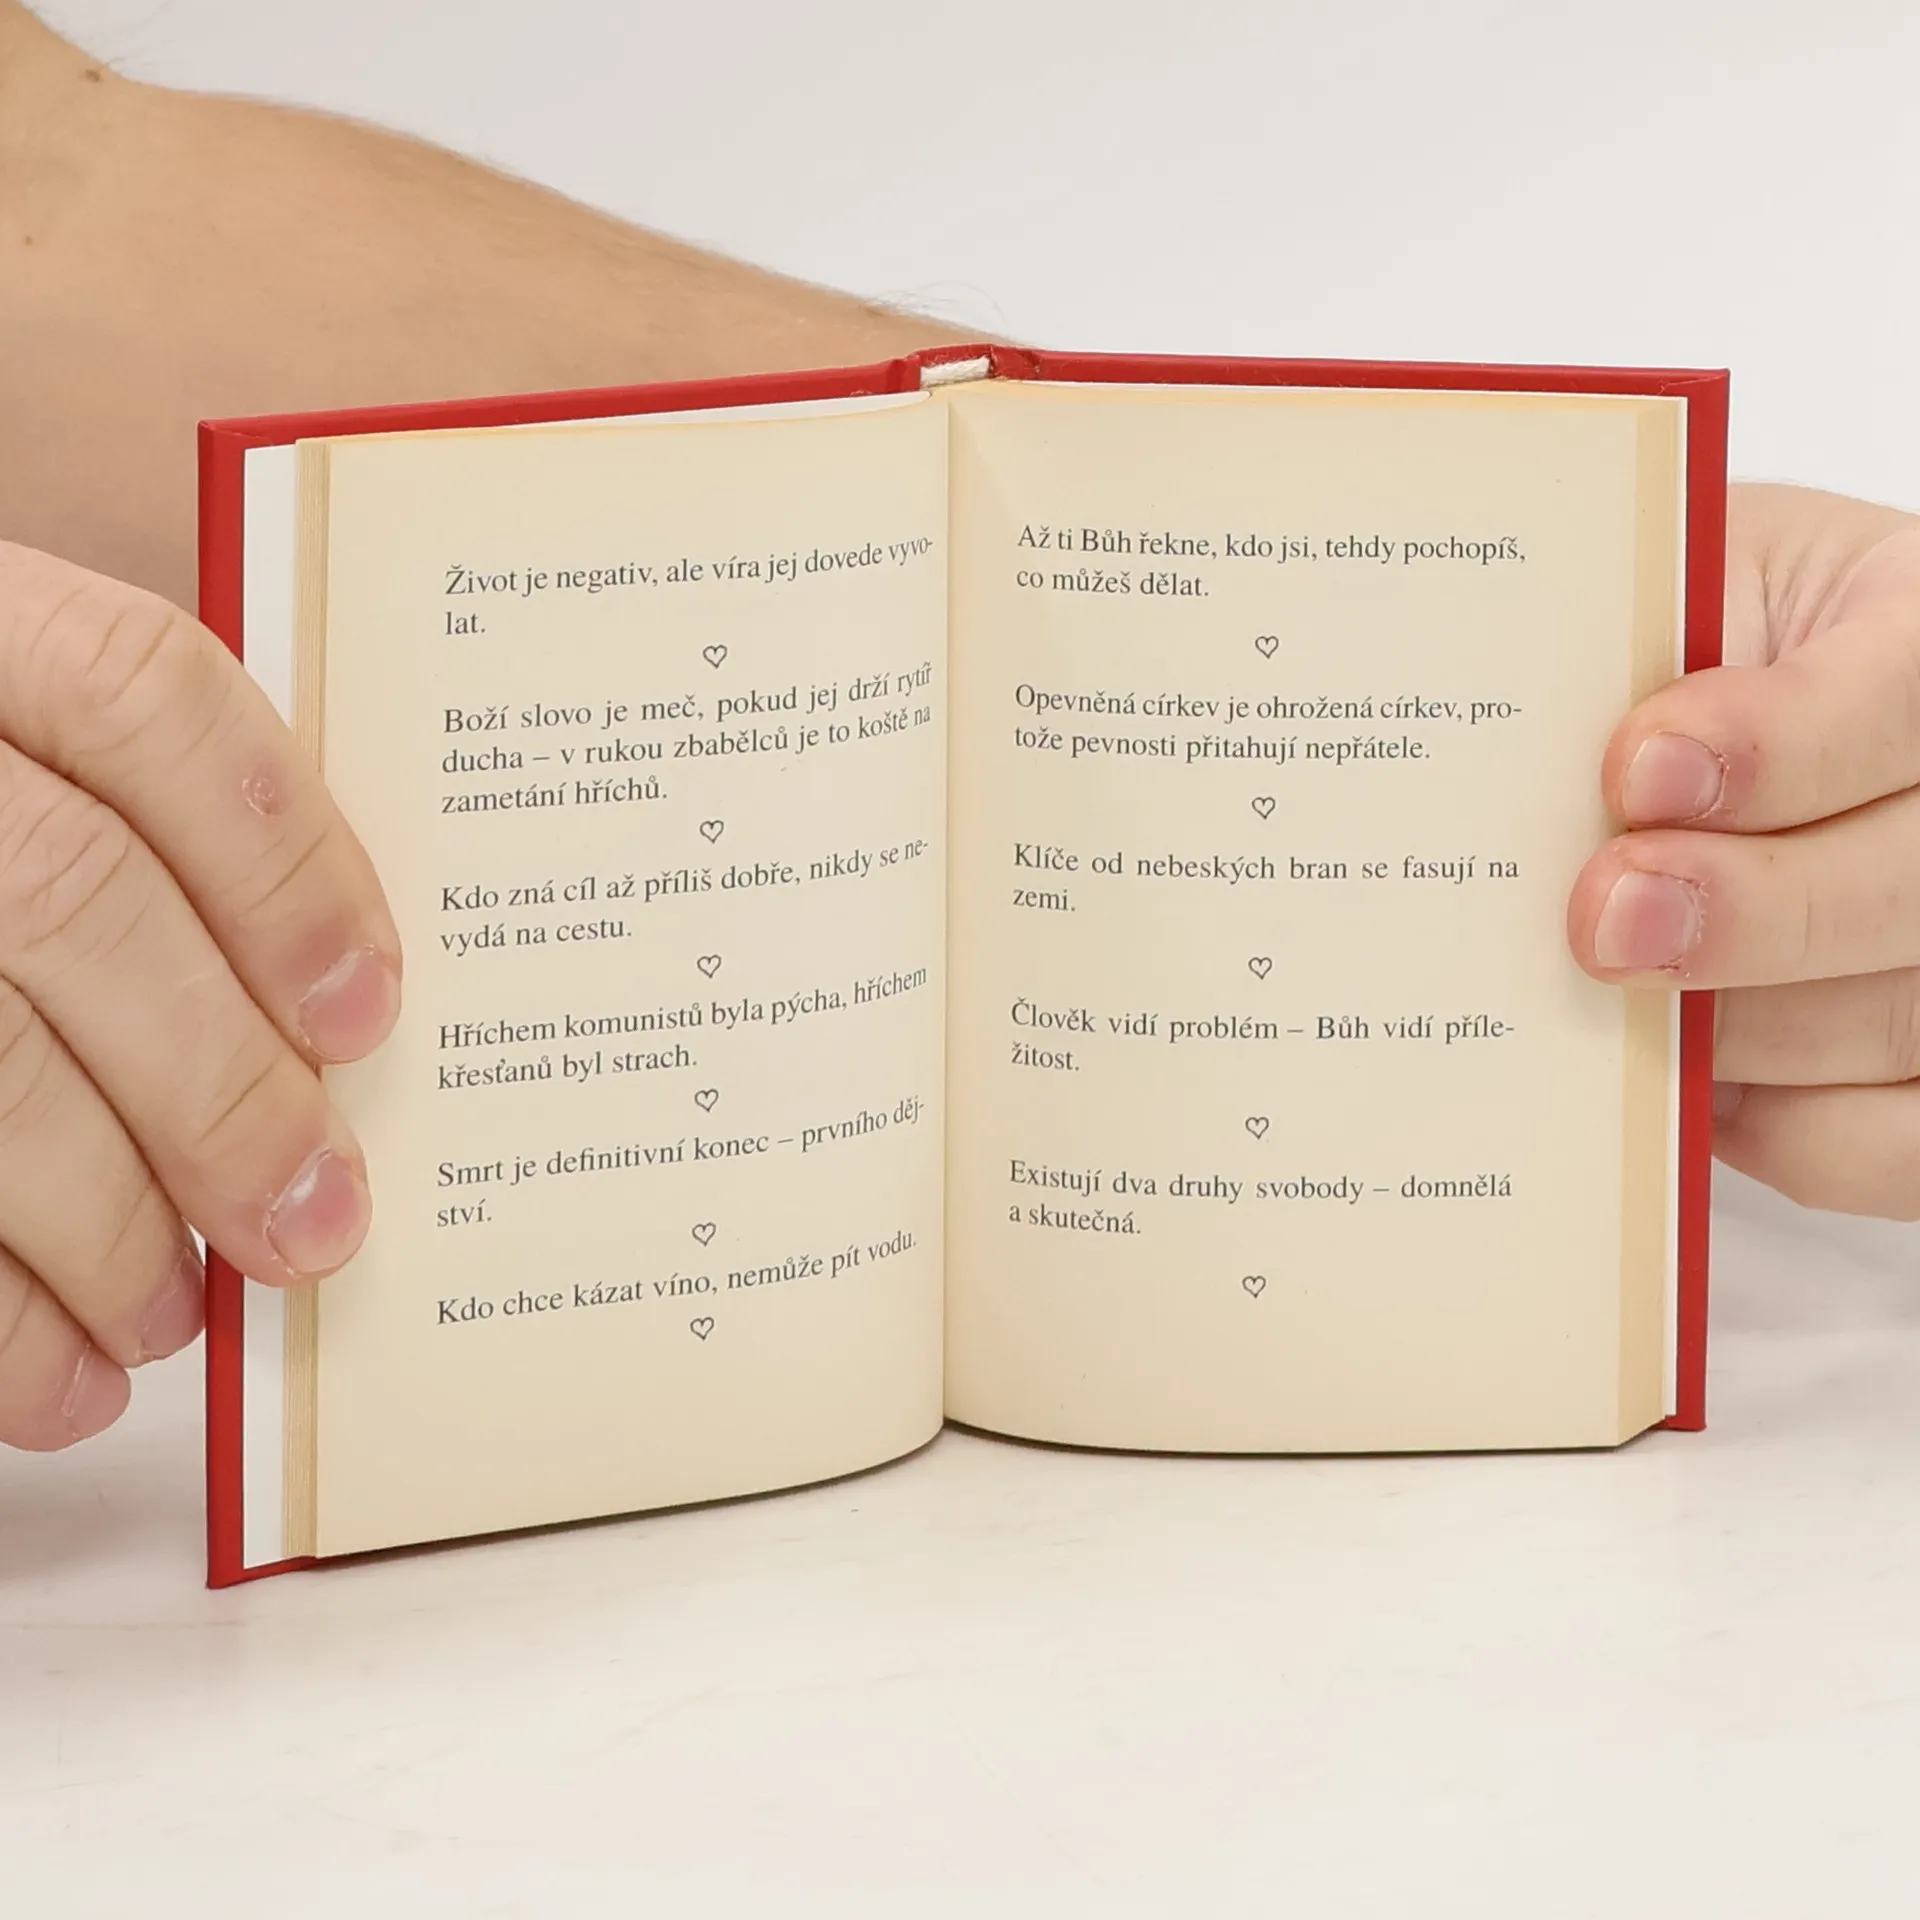 Život je negativ, ale víra jej dovede vyvo-
lat.
Boží slovo je meč, pokud jej drží rytíř
ducha – v rukou zbabělců je to koště na
zametání hříchů.
Kdo zná cíl až příliš dobře, nikdy se ne-
vydá na cestu.
Hříchem komunistů byla pýcha, hříchem
křesťanů byl strach.
Smrt je definitivní konec – prvního děj-
ství.
Kdo chce kázat víno, nemůže pít vodu.
Až ti Bůh řekne, kdo jsi, tehdy pochopíš,
co můžeš dělat.
Opevněná církev je ohrožená církev, pro-
tože pevnosti přitahují nepřátele.
Klíče od nebeských bran se fasují na
zemi.
Člověk vidí problém – Bůh vidí příle-
žitost.
Existují dva druhy svobody – domnělá
a skutečná.